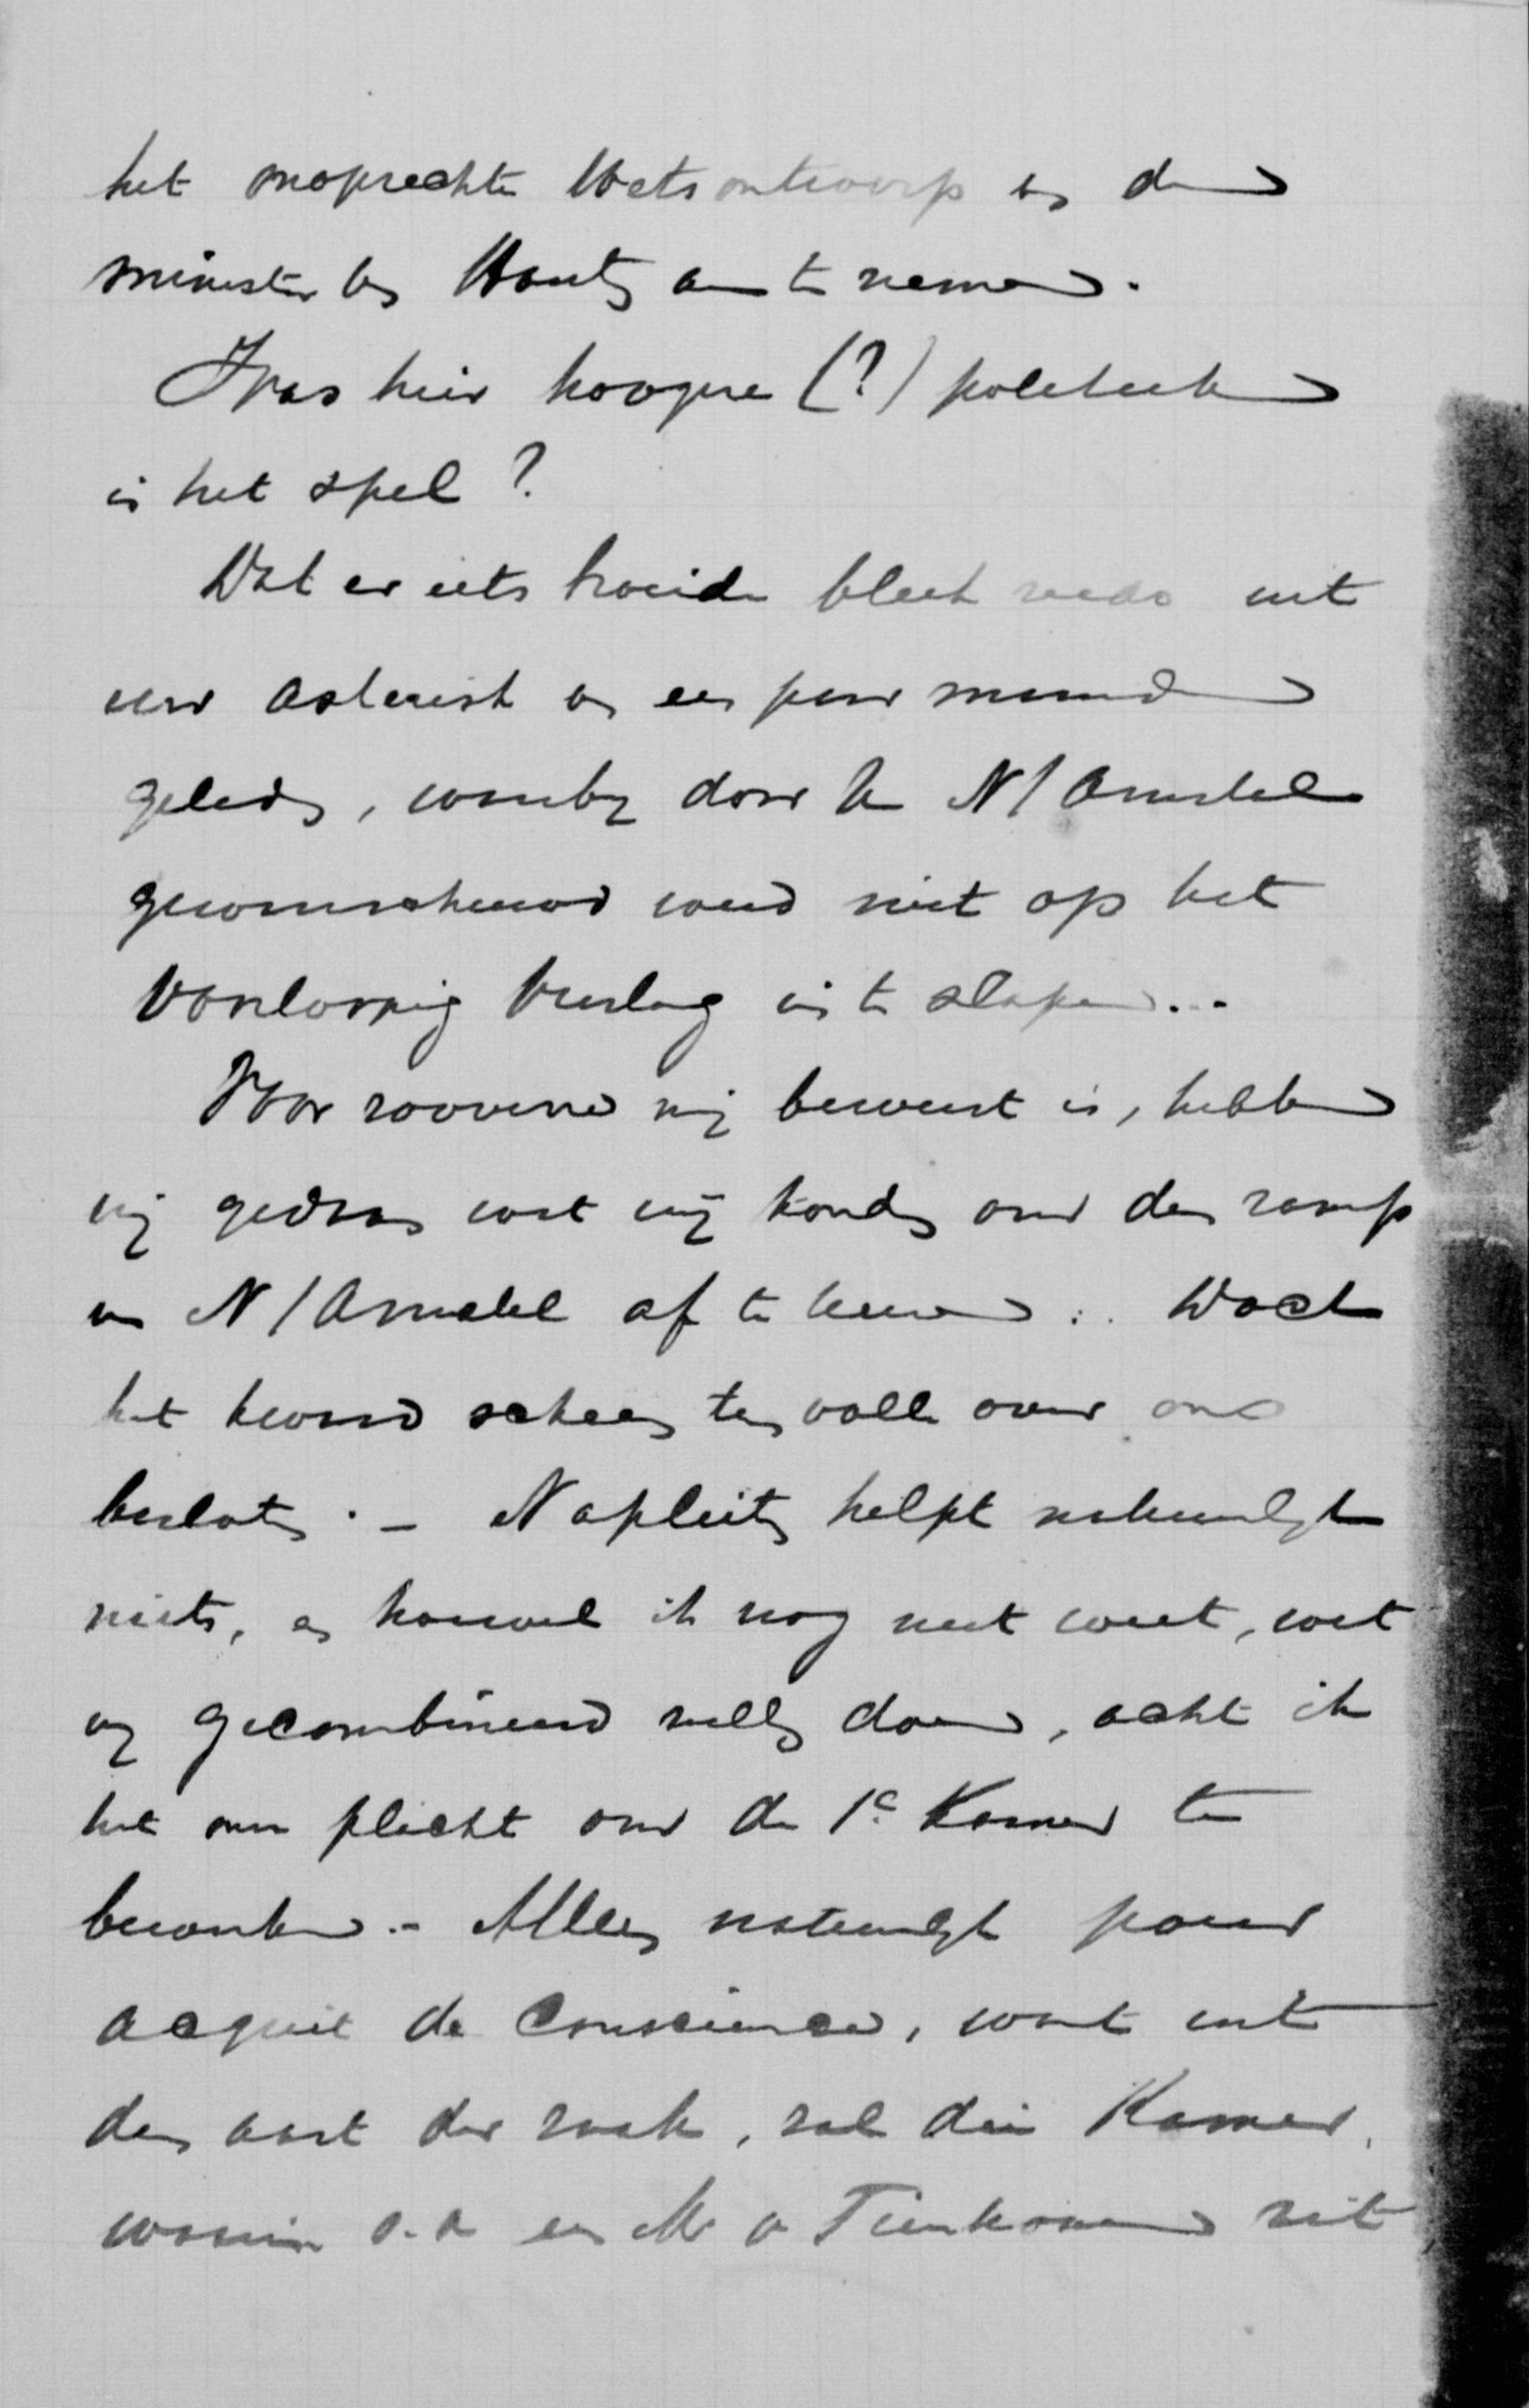 het onoprechte Wetsontwerp van den
minister van Houten aan te nemen.
Was hier hoogere (?) politiek
in het spel?
Dat er iets broeide bleek reeds uit
uw asterisk van een paar maanden
geleden, waarbij door U N/Amstel
gewaarschuwd werd niet op het
Voorloopig Verslag in te slapen...
Voor zoover mij bewust is, hebben
wij gedaan wat wij konden om den ramp
van N/Amstel af te keeren. Doch
het kwaad scheen ten volle over ons
besloten. – Napleiten helpt natuurlijk
niets, en hoewel ik nog niet weet, wat
wij gecombineerd zullen doen, acht ik
het onze plicht om de 1e Kamer te
bewerken. – Alles natuurlijk pour
acquit de conscience, want uit
den aart der zaak, zal die Kamer,
waarin o.a. een Mr v Tienhoven zit,